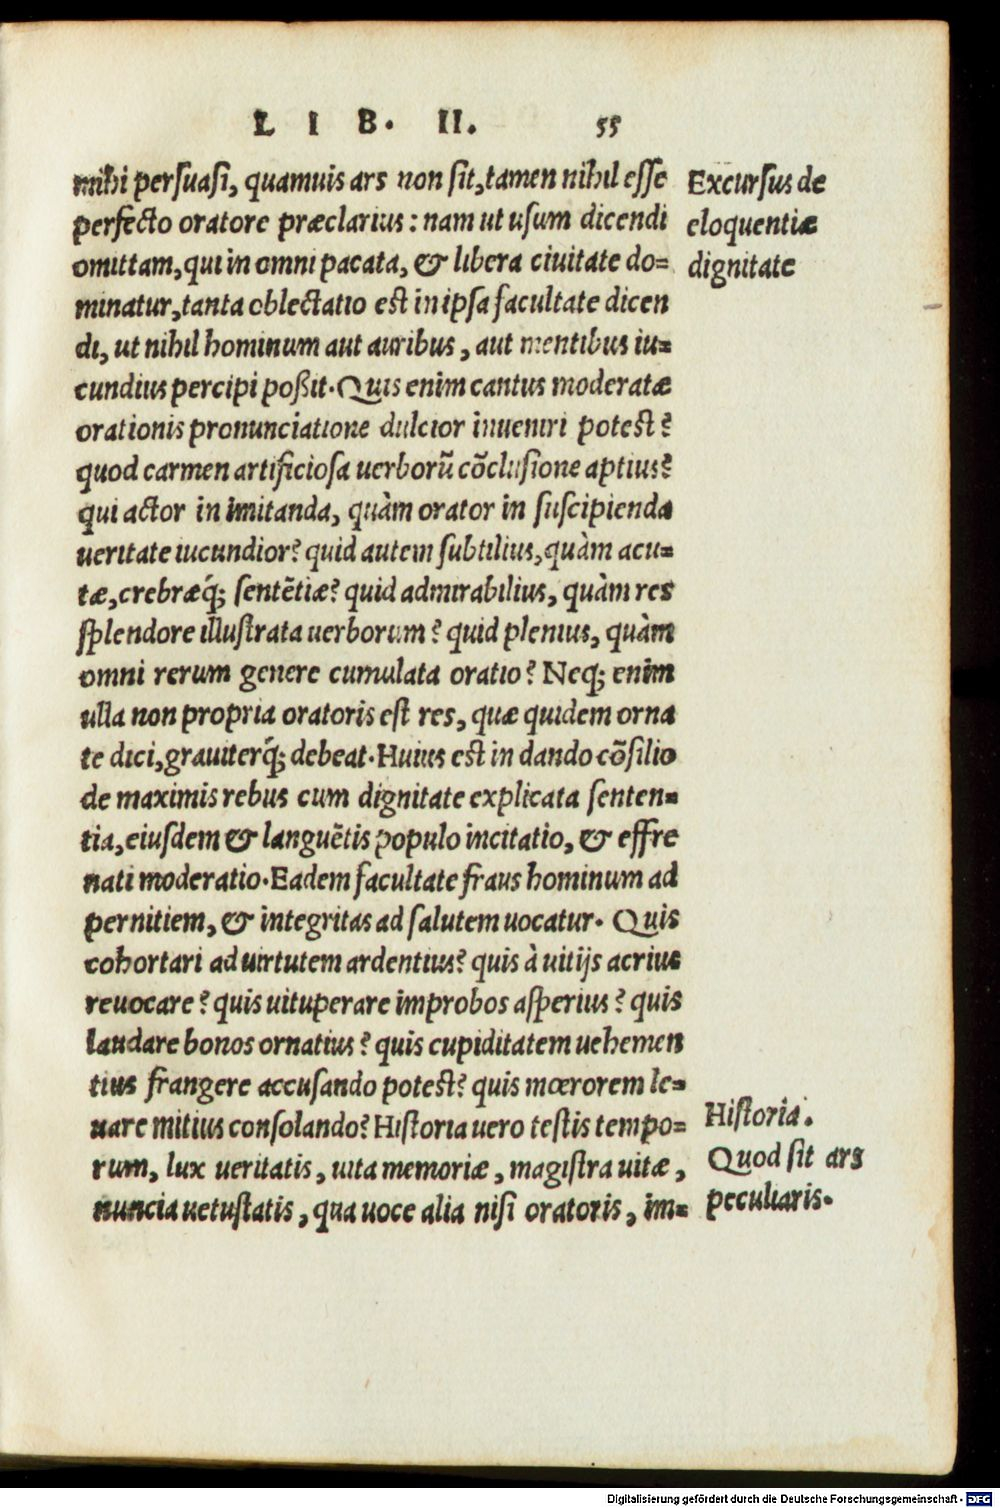 LIB. II. 55
mihi persuasi, quamuis ars non sit, tamen nihil esse
perfecto oratore præclarius: nam ut usum dicendi
omittam, qui in omni pacata, & libera ciuitate do=
minatur, tanta oblectatio est in ipsa facultate dicen
di, ut nihil hominum aut auribus, aut mentibus iu=
cundius percipi poßit. Quis enim cantus moderatæ
orationis pronunciatione dulcior inueniri potest?
quod carmen artificiosa uerborū cōclusione aptius?
qui actor in imitanda, quàm orator in suscipienda
ueritate iucundior? quid autem subtilius, quàm acu=
tæ, crebræq́; sentētiæ? quid admirabilius, quàm res
splendore illustrata uerborum? quid plenius, quàm
omni rerum genere cumulata oratio? Neq; enim
ulla non propria oratoris est res, quæ quidem orna
te dici, grauiterq́; debeat. Huius est in dando cōsilio
de maximis rebus cum dignitate explicata senten=
tia, eiusdem & languētis populo incitatio, & effre
nati moderatio. Eadem facultate fraus hominum ad
pernitiem, & integritas ad salutem uocatur. Quis
cohortari ad uirtutem ardentius? quis à uitijs acrius
reuocare? quis uituperare improbos asperius? quis
laudare bonos ornatius? quis cupiditatem uehemen
tius frangere accusando potest? quis mœrorem le=
uare mitius consolando? Historia uero testis tempo=
rum, lux ueritatis, uita memoriæ, magistra uitæ,
nuncia uetustatis, qua uoce alia nisi oratoris, im=
Excursus de
eloquentiæ
dignitate
Historia.
Quod sit ars
peculiaris.
Digitalisierung gefördert durch die Deutsche Forschungsgemeinschaft - DFG